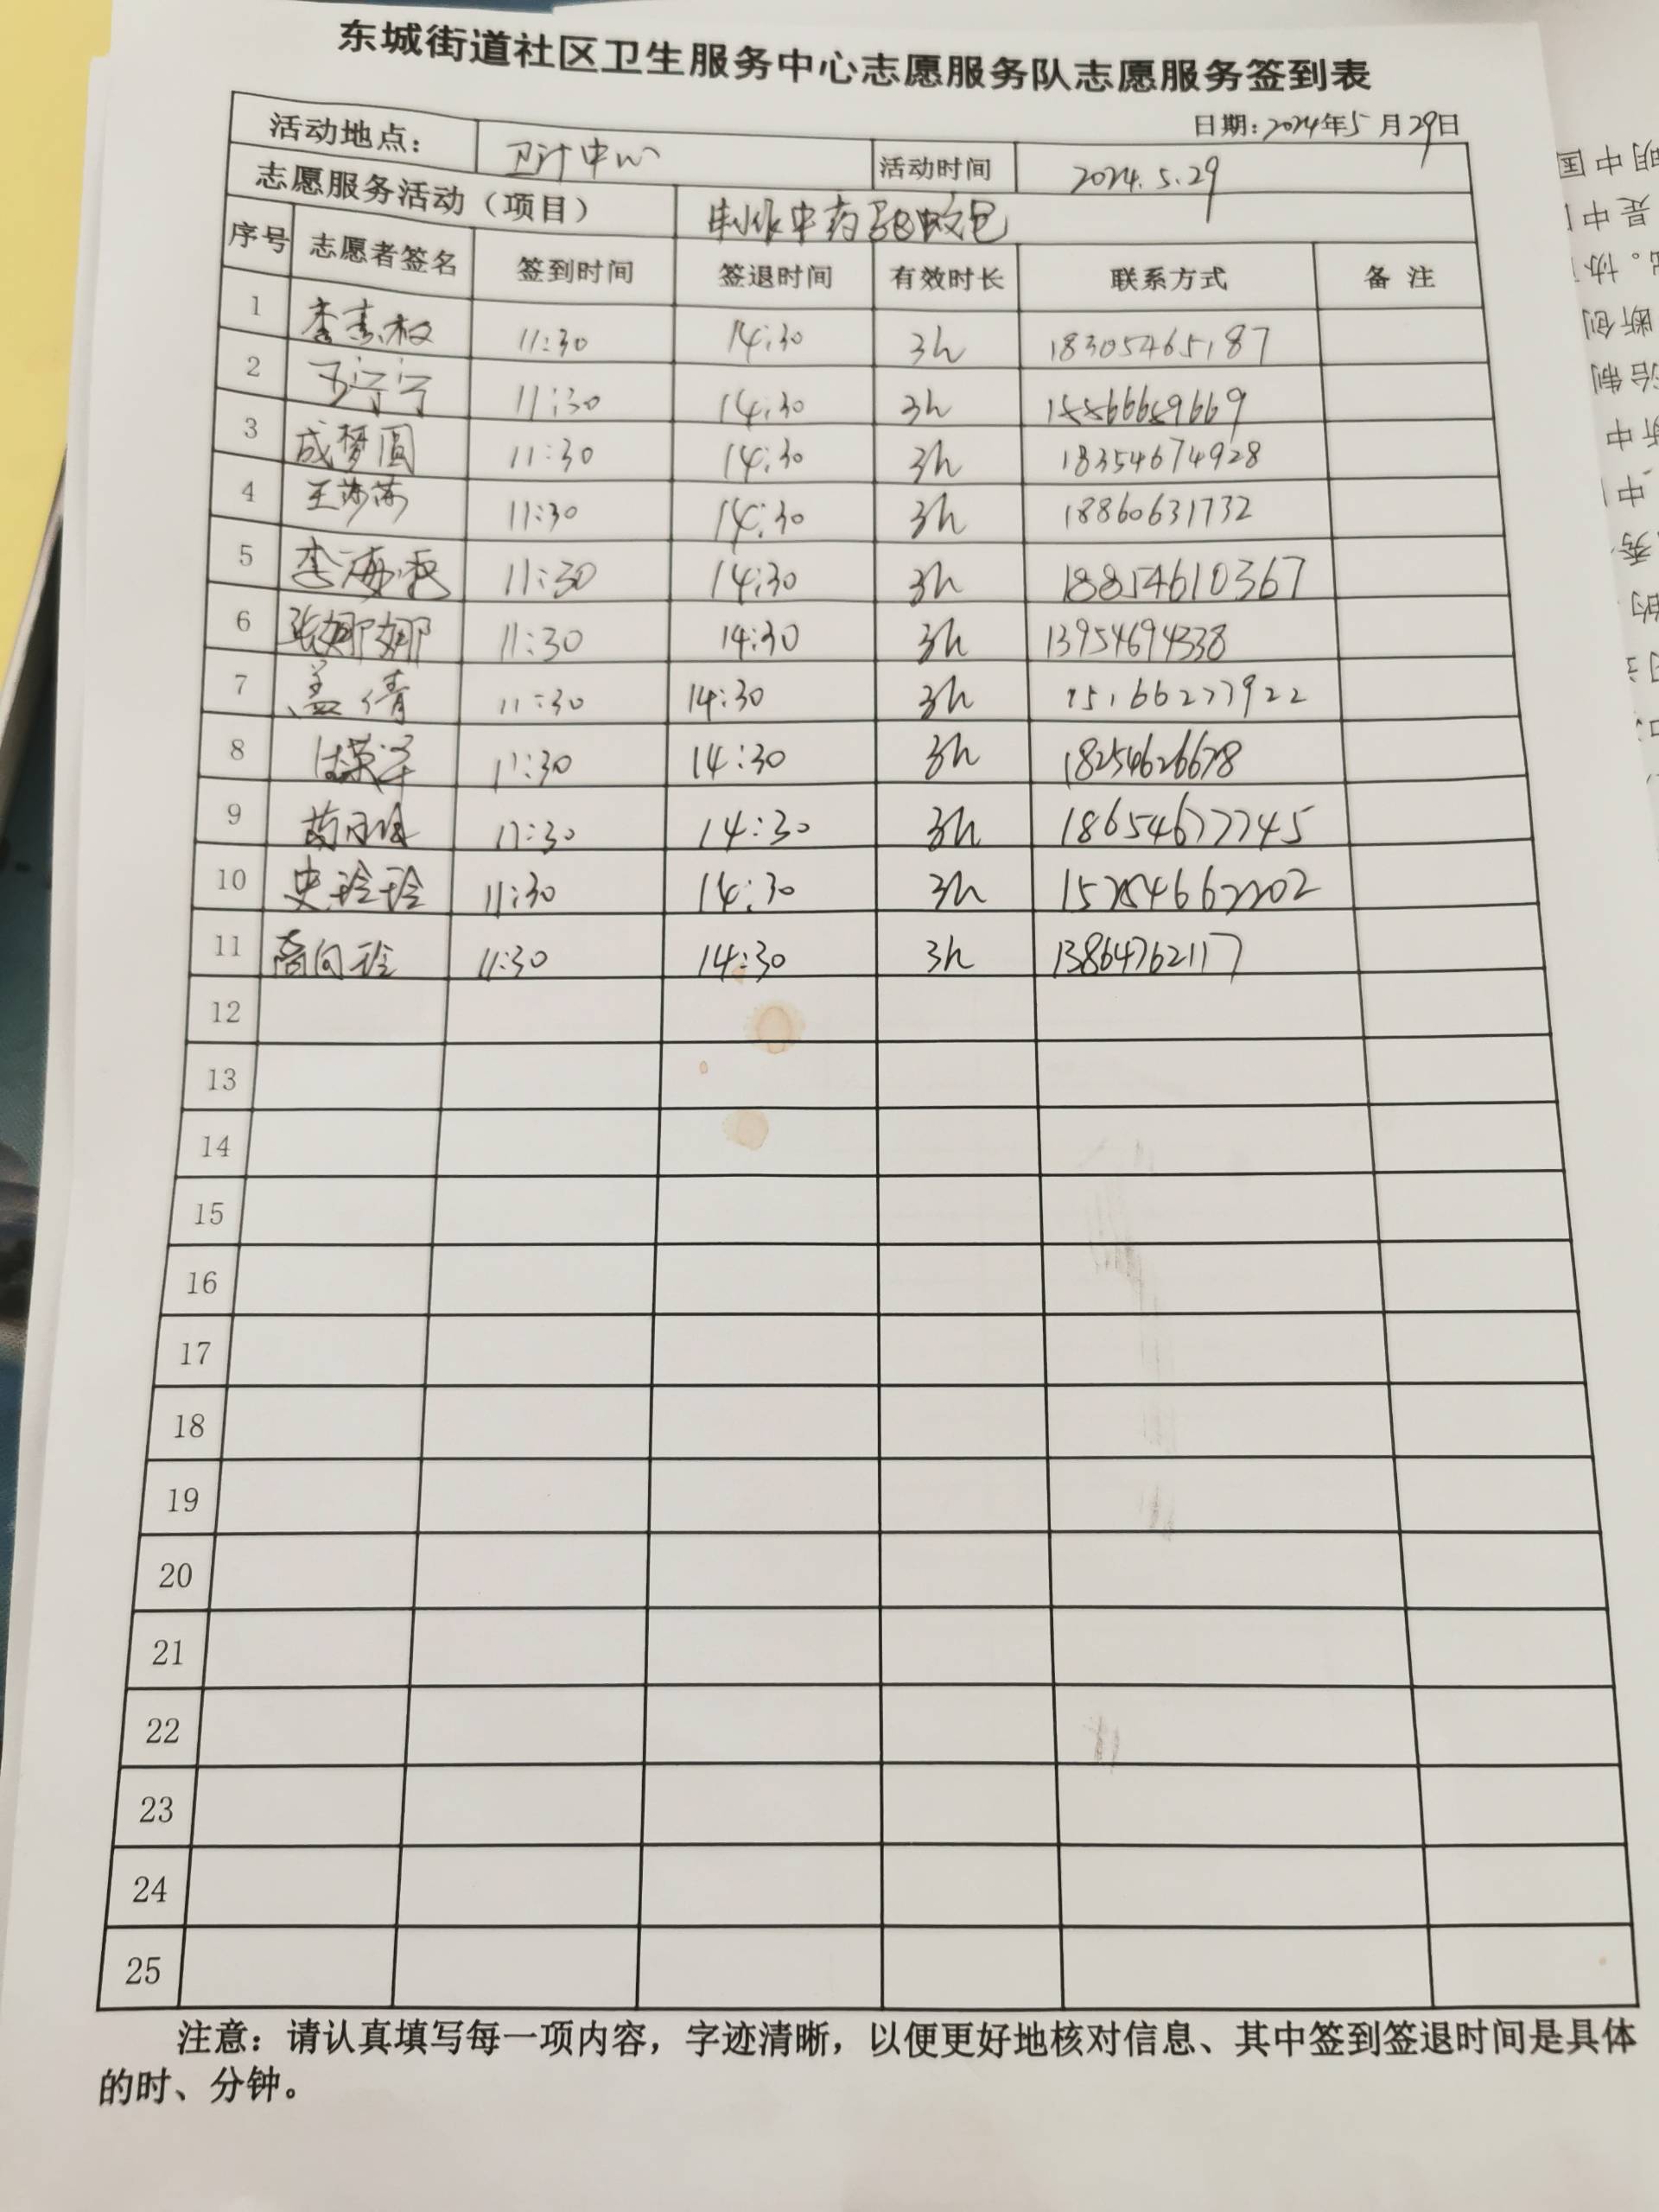 东城街道社区卫生服务中心志愿服务队志愿服务签到表
日期：2024年5月29日
活动地点： 卫计中心 活动时间 2024.5.29
志愿服务活动（项目） 制作中药驱蚊包
序号 志愿者签名 签到时间 签退时间 有效时长 联系方式 备注
1 11:30 14:30 3h 18305465187
2 王宁宁 11:30 14:30 3h 15566659669
3 成梦圆 11:30 14:30 3h 18354674928
4 王莎莎 11:30 14:30 3h 18860631732
5 11:30 14:30 3h 18854610367
6 张娜娜 11:30 14:30 3h 13954694338
7 盖倩 11:30 14:30 3h 15166277922
8 11:30 14:30 3h 18254626678
9 11:30 14:30 3h 18654677745
10 史玲玲 11:30 14:30 3h
11 商向玲 11:30 14:30 3h 13864762117
12
13
14
15
16
17
18
19
20
21
22
23
24
25
注意：请认真填写每一项内容，字迹清晰，以便更好地核对信息、其中签到签退时间是具体
的时、分钟。